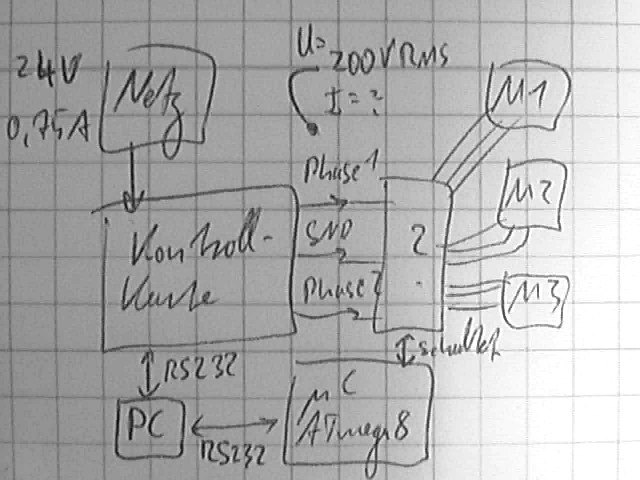 24V
0,75A
Netz
U=
200VRMS
I=?
M1
Phase1
GND
Phase2
Kontroll-
Karte
?
M2
M3
schaltet
RS232
PC
RS232
µC
ATmega8